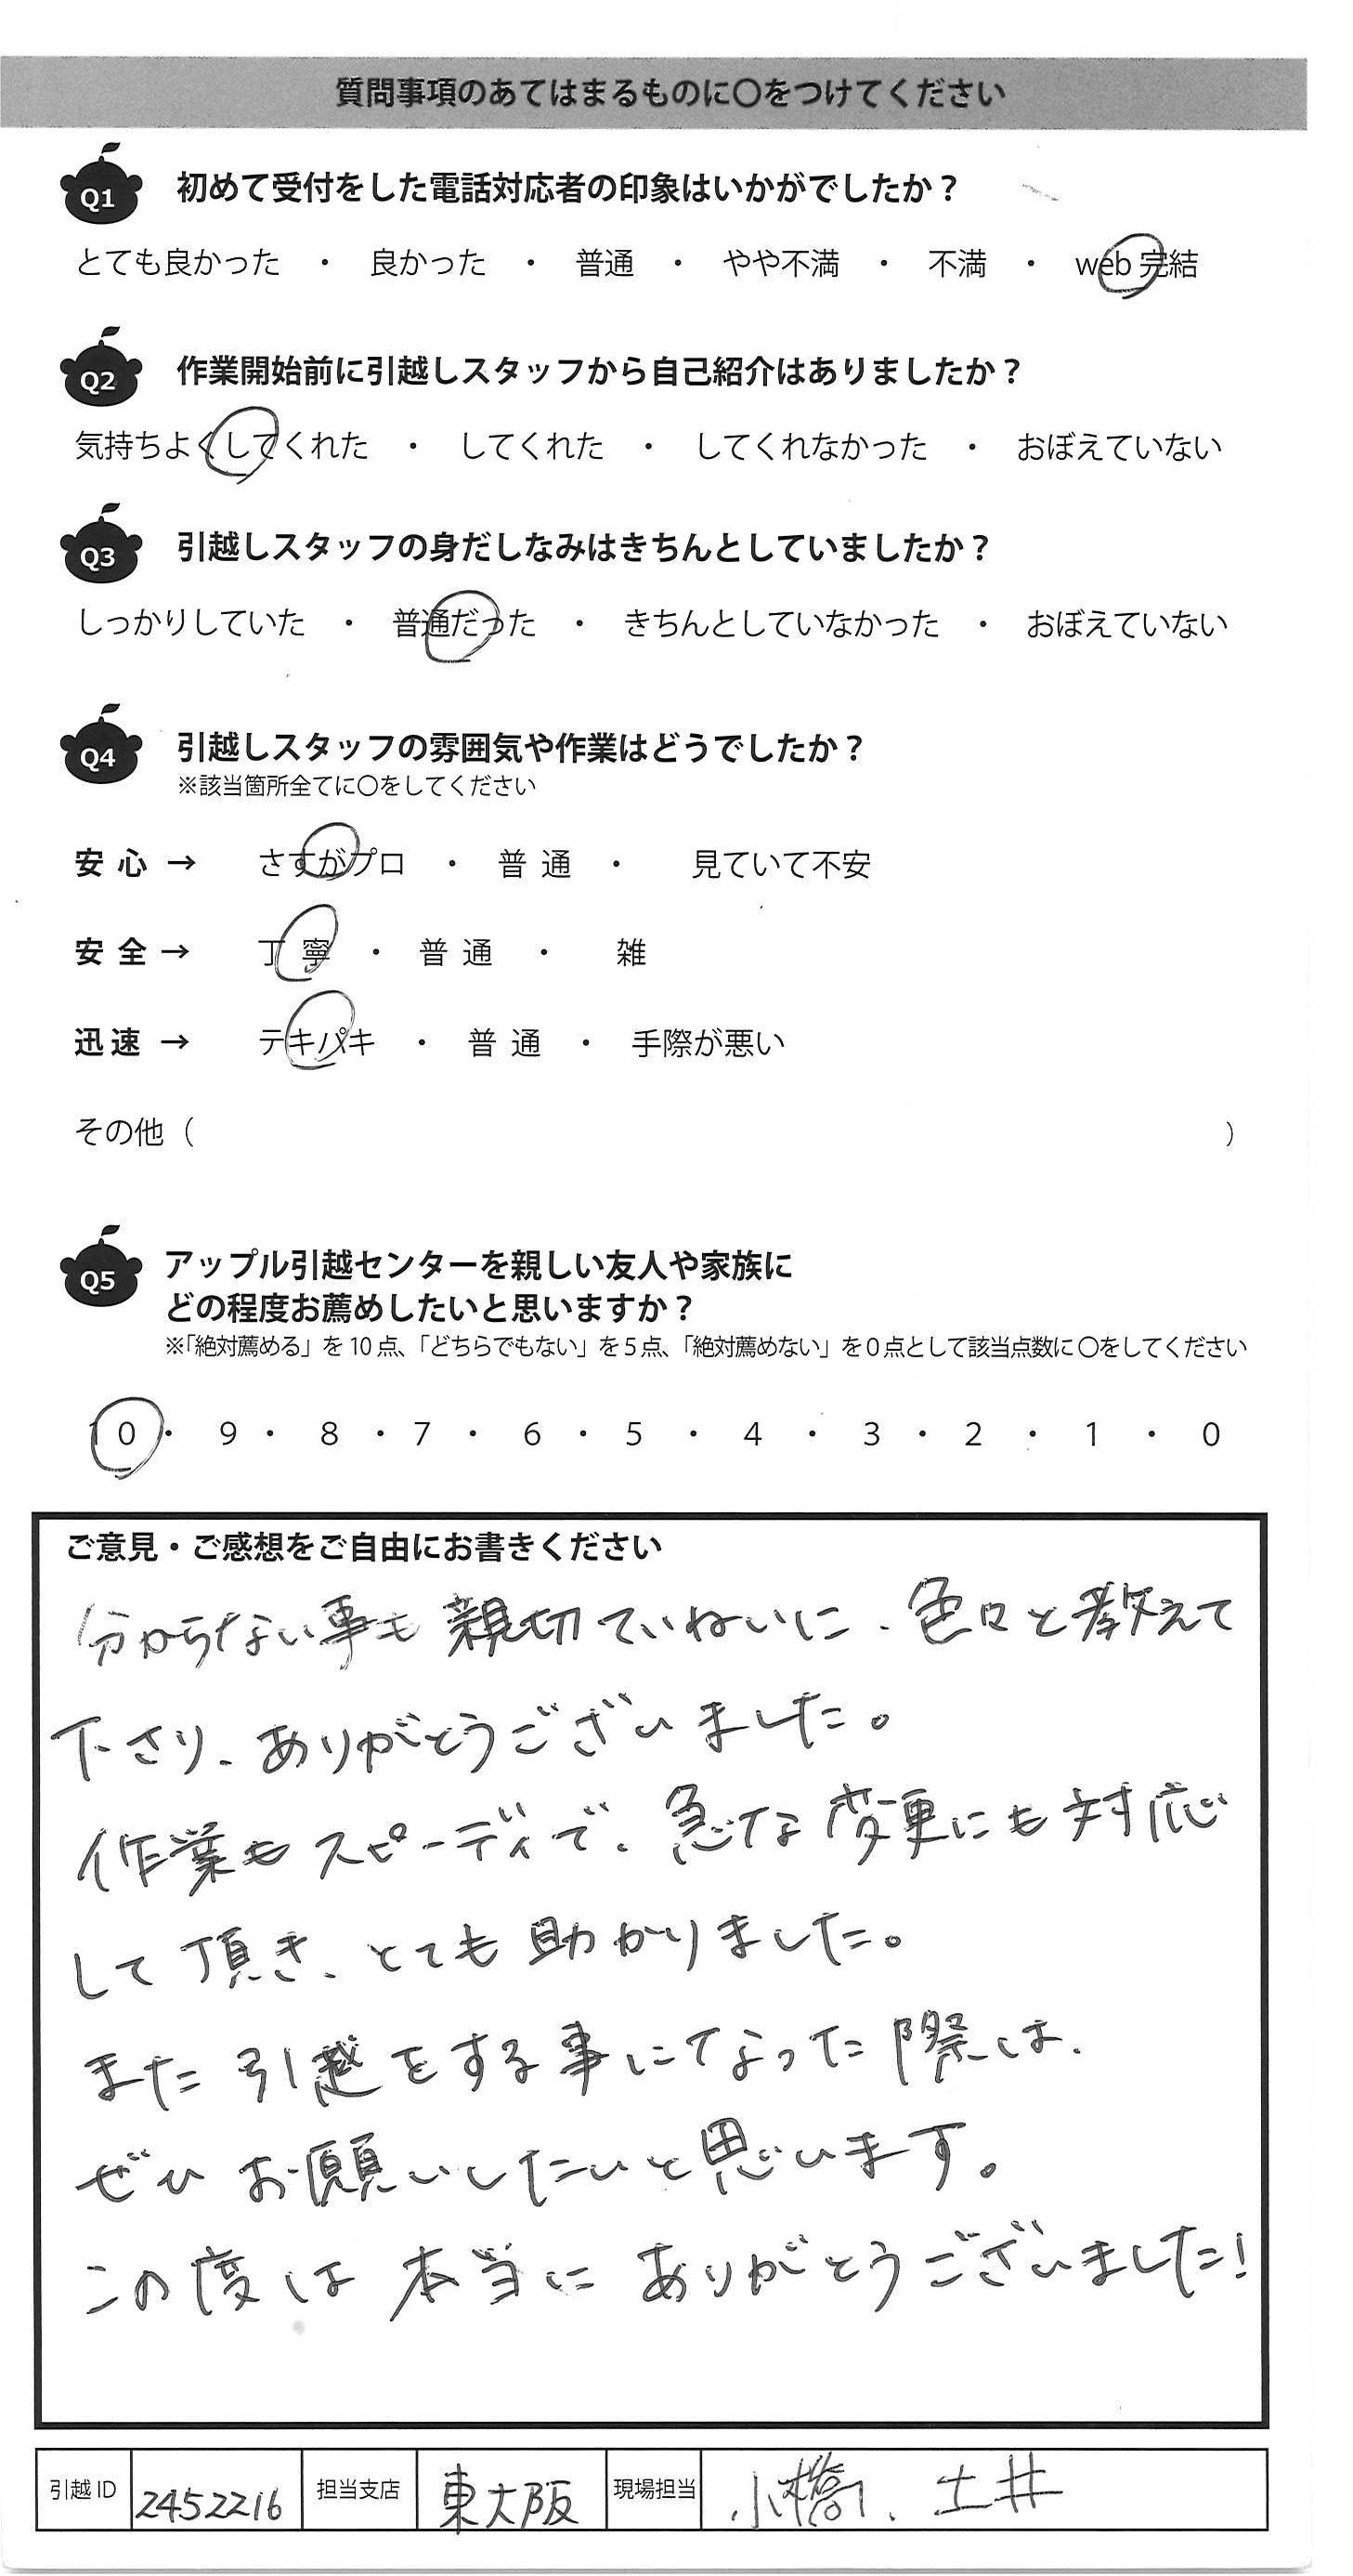 質問事項のあてはまるものに〇をつけてください
Q1 初めて受付をした電話対応者の印象はいかがでしたか？
とても良かった ・ 良かった ・ 普通 ・ やや不満 ・ 不満 ・ web 完結
Q2 作業開始前に引越しスタッフから自己紹介はありましたか？
気持ちよくしてくれた ・ してくれた ・ してくれなかった ・ おぼえていない
Q3 引越しスタッフの身だしなみはきちんとしていましたか？
しっかりしていた ・ 普通だった ・ きちんとしていなかった ・ おぼえていない
Q4 引越しスタッフの雰囲気や作業はどうでしたか？
※該当箇所全てに〇をしてください
安 心 → さすがプロ ・ 普 通 ・ 見ていて不安
安 全 → 丁 寧 ・ 普 通 ・ 雑
迅 速 → テキパキ ・ 普 通 ・ 手際が悪い
その他（ ）
Q5 アップル引越センターを親しい友人や家族に
どの程度お薦めしたいと思いますか？
※「絶対薦める」を 10 点、「どちらでもない」を 5 点、「絶対薦めない」を 0 点として該当点数に 〇をしてください
10 ・ 9 ・ 8 ・ 7 ・ 6 ・ 5 ・ 4 ・ 3 ・ 2 ・ 1 ・ 0
ご意見・ご感想をご自由にお書きください
分からない事も親切ていねいに、色々と教えて
下さり、ありがとうございました。
作業もスピーディで、急な変更にも対応
して頂き、とても助かりました。
また引越をする事になった際は、
ぜひお願いしたいと思います。
この度は本当にありがとうございました！
引越 ID 2452216 担当支店 東大阪 現場担当 小橋、土井